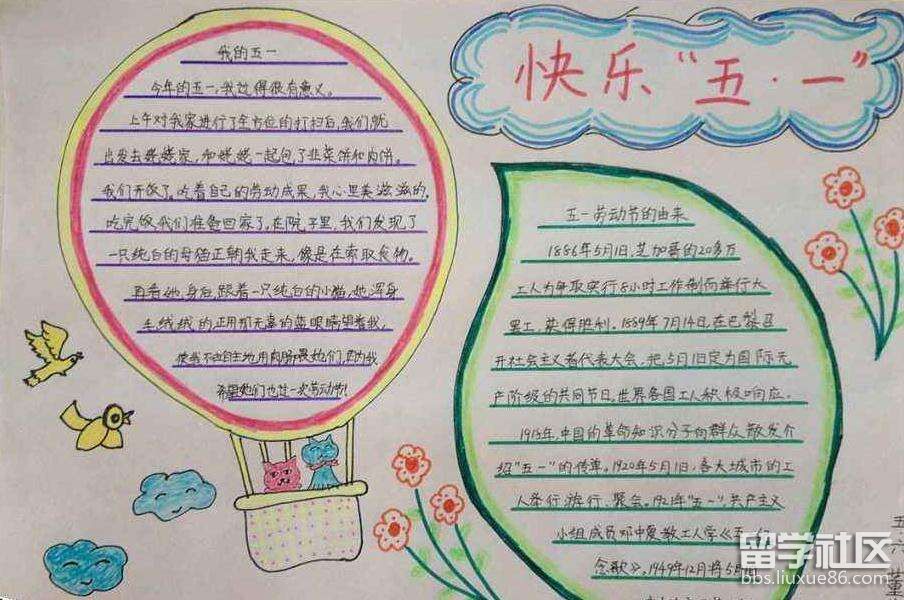 快乐“五·一”
我的五一
今年的五一,我过得很有意义。
上午对我家进行了全方位的打扫后,我们就
出发去姥姥家,和姥姥一起包了韭菜饼和肉饼。
我们开饭了,吃着自己的劳动成果,我心里美滋滋的。
吃完饭我们准备回家了,在院子里,我们发现了
一只纯白的母猫正朝我走来,像是在索取食物。
再看她身后,跟着一只纯白的小猫,她浑身
毛绒绒的正用那无辜的蓝眼睛望着我,
使我不由自主地用肉肠喂她们,因为我
希望她们也过一次劳动节!
五一劳动节的由来
1886年5月1日,芝加哥的20多万
工人为争取实行8小时工作制而举行大
罢工,获得胜利。1889年7月14日,在巴黎召
开社会主义者代表大会,把5月1日定为国际无
产阶级的共同节日,世界各国工人积极响应。
1918年,中国的革命知识分子向群众散发介
绍“五一”的传单。1920年5月1日,各大城市的工
人举行游行、聚会。1921年“五一”共产主义
小组成员邓中夏教工人学《五一纪
念歌》,1949年12月将5月1日
五六
董
留学社区
bbs.liuxue86.com